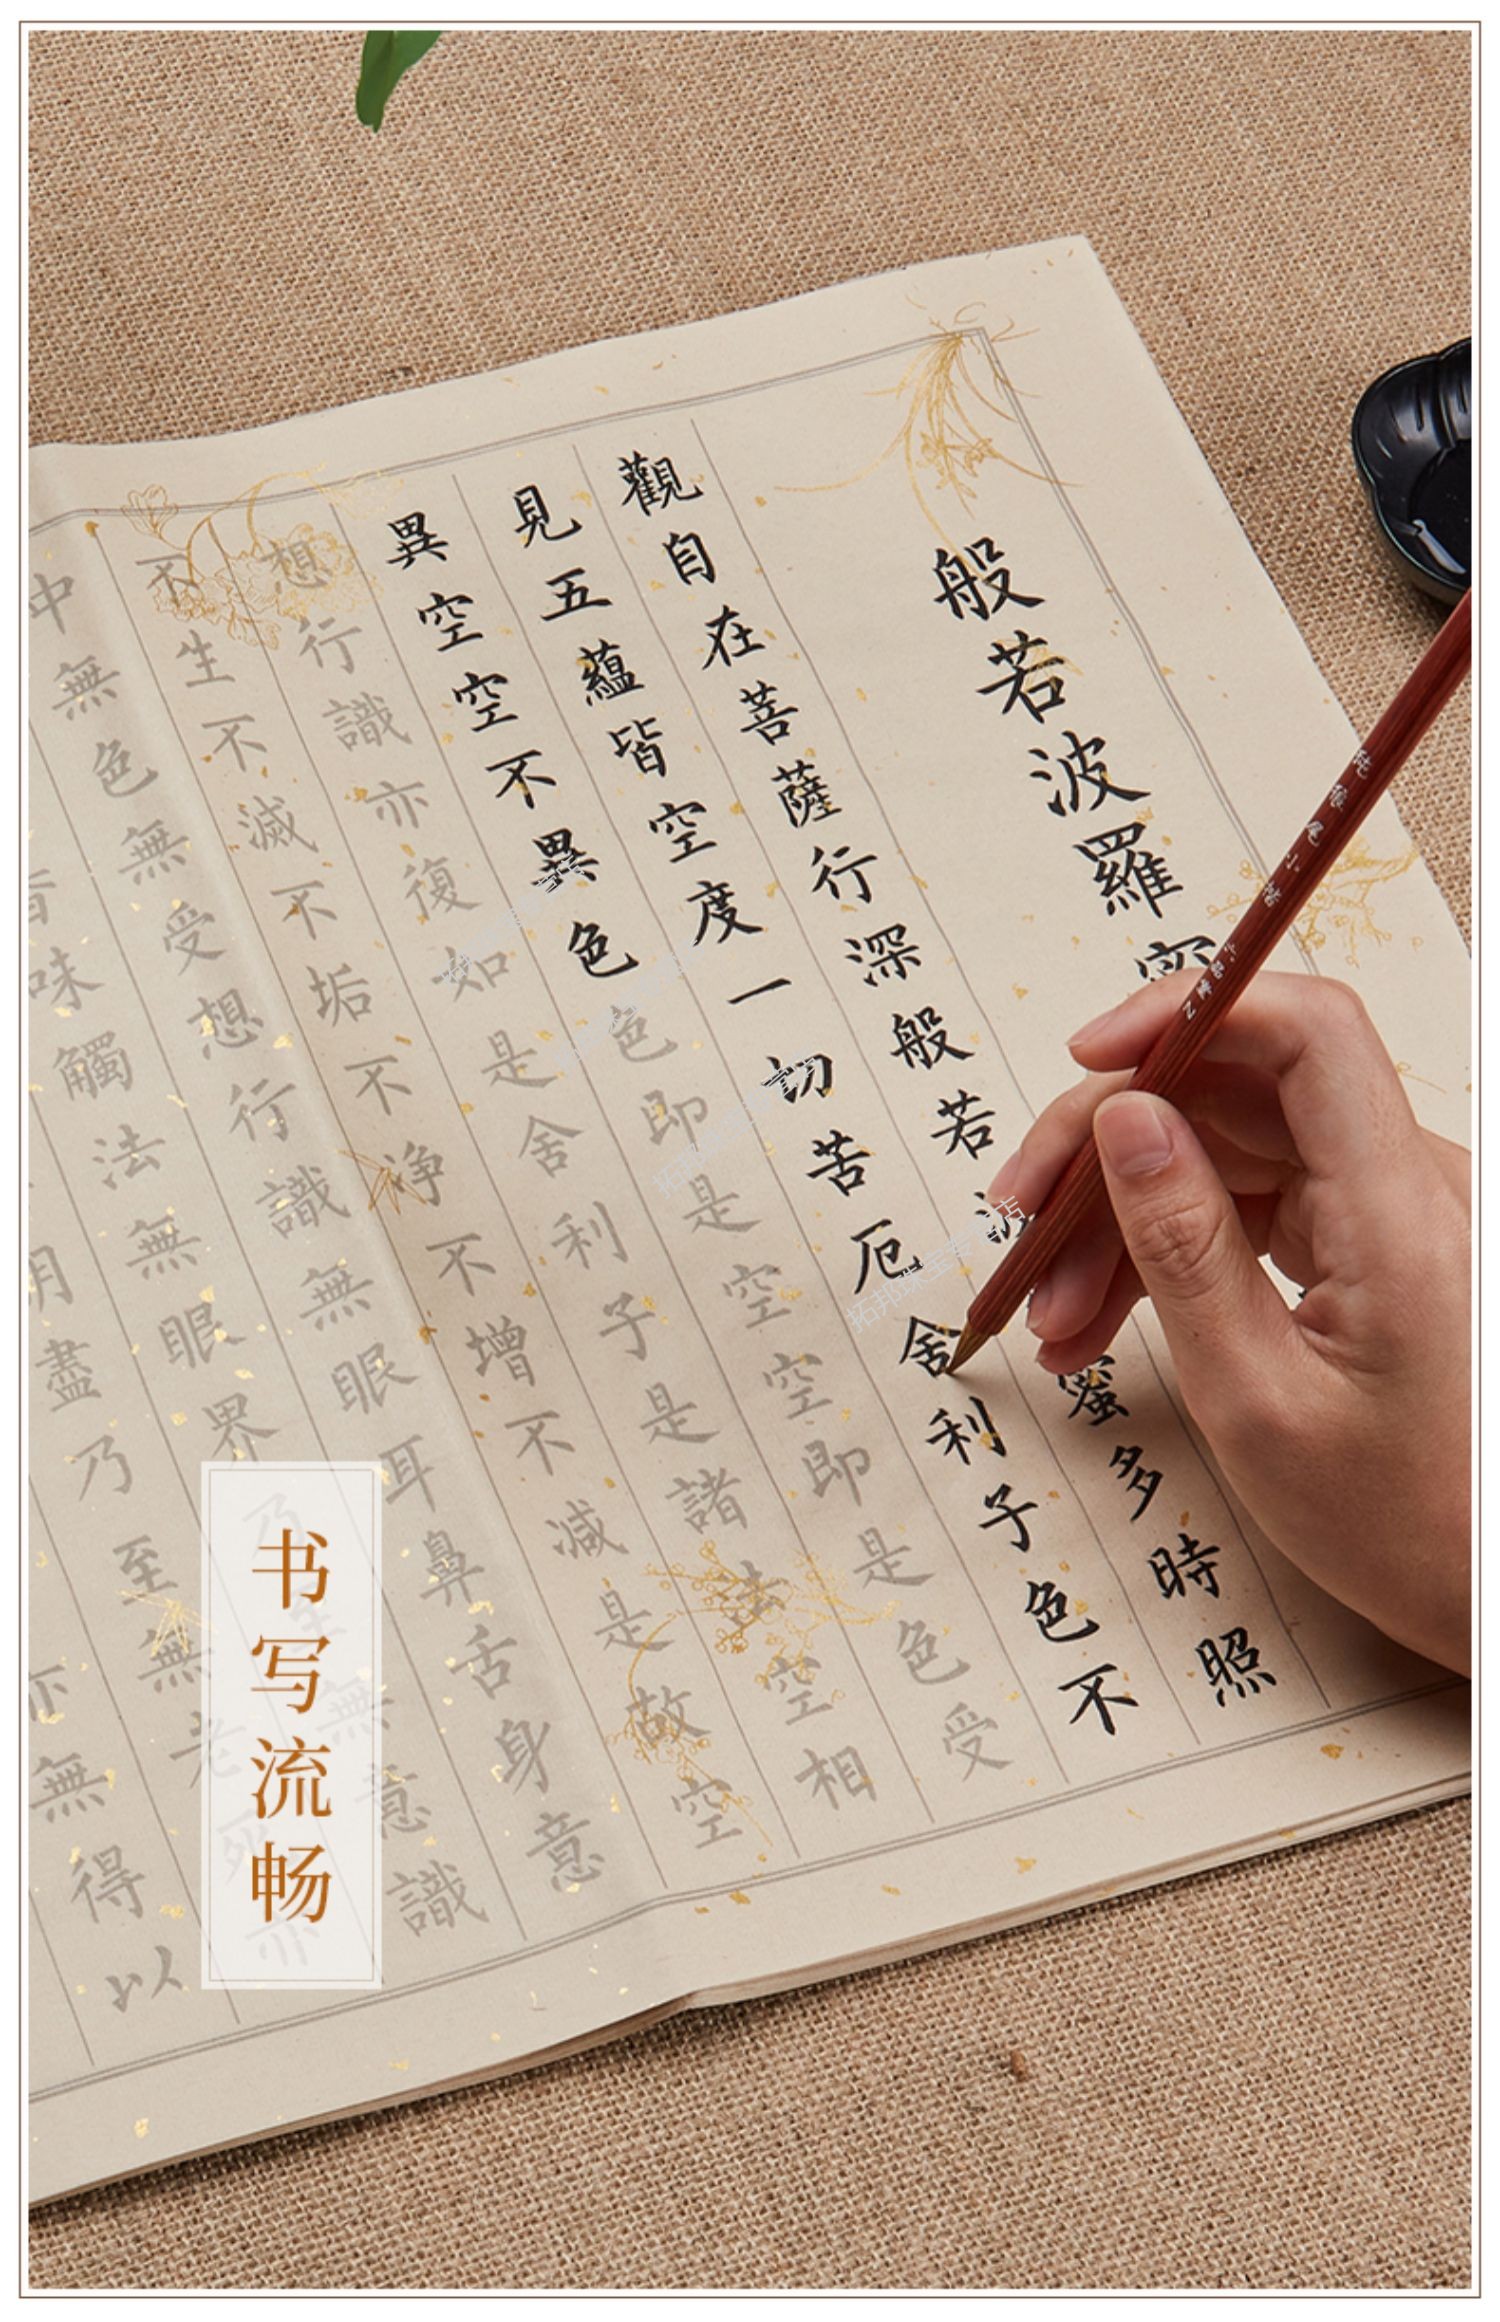 般若波羅
觀自在菩薩行深般若蜜多時照
見五蘊皆空度一切苦厄舍利子色不
異空空不異色色即是空空即是色受
想行識亦復如是舍利子是諸法空相
不生不滅不垢不净不增不減是故空
中無色無受想行識無眼耳鼻舌身意
香味觸法無眼界乃至無意識
明盡乃至無老死亦
亦無得以
书写流畅